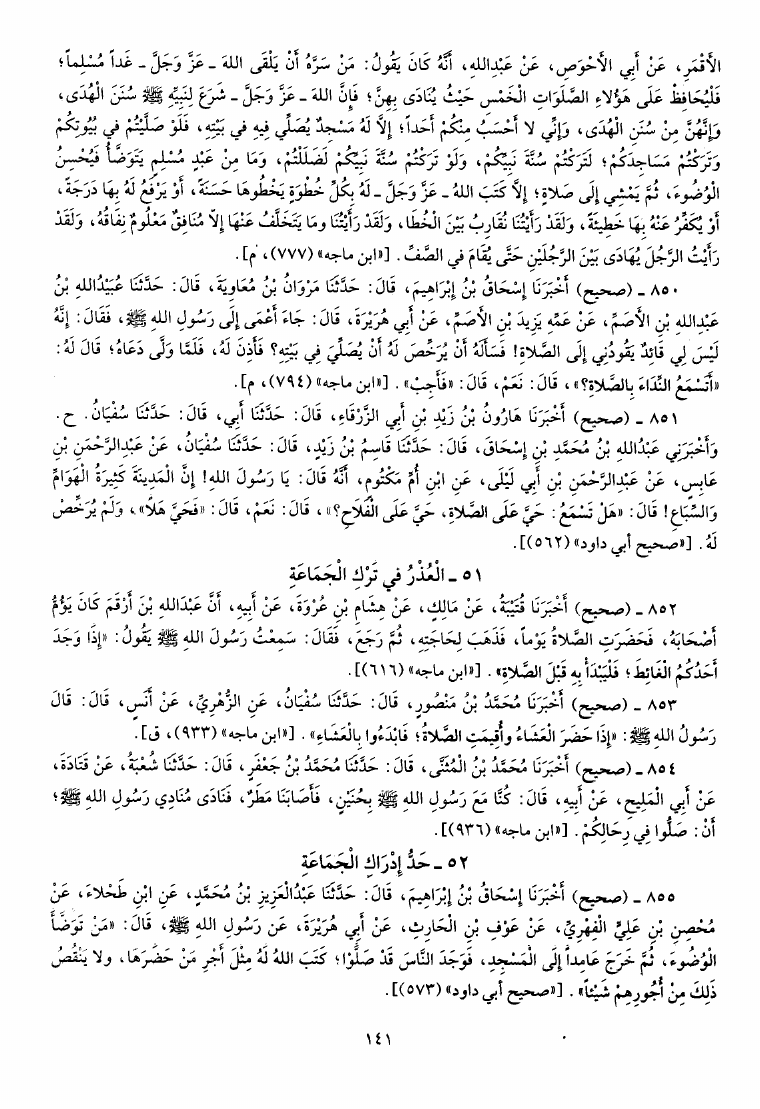 الأَقْمَرِ، عَنْ أَبِي الأَحْوَصِ، عَنْ عَبْدِاللهِ، أَنَّهُ كَانَ يَقُولُ: مَنْ سَرَّهُ أَنْ يَلْقَى اللهَ ـ عَزَّ وَجَلَّ ـ غَداً مُسْلِماً؛
فَلْيُحَافِظْ عَلَى هَؤُلاءِ الصَّلَوَاتِ الْخَمْسِ حَيْثُ يُنَادَى بِهِنَّ؛ فَإِنَّ اللهَ ـ عَزَّ وَجَلَّ ـ شَرَعَ لِنَبِيِّهِ ﷺ سُنَنَ الْهُدَى،
وَإِنَّهُنَّ مِنْ سُنَنِ الْهُدَى، وَإِنِّي لا أَحْسَبُ مِنْكُمْ أَحَداً؛ إِلَّا لَهُ مَسْجِدٌ يُصَلِّي فِيهِ في بَيْتِهِ، فَلَوْ صَلَّيْتُمْ في بُيُوتِكُمْ
وَتَرَكْتُمْ مَسَاجِدَكُمْ؛ لَتَرَكْتُمْ سُنَّةَ نَبِيِّكُمْ، وَلَوْ تَرَكْتُمْ سُنَّةَ نَبِيِّكُمْ لَضَلَلْتُمْ، وَمَا مِنْ عَبْدٍ مُسْلِمٍ يَتَوَضَّأُ فَيُحْسِنُ
الْوُضُوءَ، ثُمَّ يَمْشِي إِلَى صَلاةٍ؛ إِلَّا كَتَبَ اللهُ ـ عَزَّ وَجَلَّ ـ لَهُ بِكُلِّ خُطْوَةٍ يَخْطُوهَا حَسَنَةً، أَوْ يَرْفَعُ لَهُ بِهَا دَرَجَةً،
أَوْ يُكَفِّرُ عَنْهُ بِهَا خَطِيئَةً، وَلَقَدْ رَأَيْتُنَا نُقَارِبُ بَيْنَ الْخُطَا، وَلَقَدْ رَأَيْتُنَا وَما يَتَخَلَّفُ عَنْهَا إِلاّ مُنَافِقٌ مَعْلُومٌ نِفَاقُهُ، وَلَقَدْ
رَأَيْتُ الرَّجُلَ يُهَادَى بَيْنَ الرَّجُلَيْنِ حَتَّى يُقَامَ في الصَّفِّ. [«ابن ماجه» (٧٧٧)، م].
٨٥٠ ـ (صحيح) أَخْبَرَنَا إِسْحَاقُ بْنُ إِبْرَاهِيمَ، قَالَ: حَدَّثَنَا مَرْوَانُ بْنُ مُعَاوِيَةَ، قَالَ: حَدَّثَنَا عُبَيْدُاللهِ بْنُ
عَبْدِاللهِ بْنِ الأَصَمِّ، عَنْ عَمِّهِ يَزِيدَ بْنِ الأَصَمِّ، عَنْ أَبِي هُرَيْرَةَ، قَالَ: جَاءَ أَعْمَى إِلَى رَسُولِ اللهِ ﷺ، فَقَالَ: إِنَّهُ
لَيْسَ لِي قَائِدٌ يَقُودُنِي إِلَى الصَّلاةِ! فَسَأَلَهُ أَنْ يُرَخِّصَ لَهُ أَنْ يُصَلِّيَ فِي بَيْتِهِ؟ فَأَذِنَ لَهُ، فَلَمَّا وَلَّى دَعَاهُ؛ قَالَ لَهُ:
«أَتَسْمَعُ النِّدَاءَ بِالصَّلاةِ؟»، قَالَ: نَعَمْ، قَالَ: «فَأَجِبْ». [«ابن ماجه» (٧٩٤)، م].
٨٥١ ـ (صحيح) أَخْبَرَنَا هَارُونُ بْنُ زَيْدِ بْنِ أَبِي الزَّرْقَاءِ، قَالَ: حَدَّثَنَا أَبِي، قَالَ: حَدَّثَنَا سُفْيَانُ. ح.
وَأَخْبَرَنِي عَبْدُاللهِ بْنُ مُحَمَّدِ بْنِ إِسْحَاقَ، قَالَ: حَدَّثَنَا قَاسِمُ بْنُ زَيْدٍ، قَالَ: حَدَّثَنَا سُفْيَانُ، عَنْ عَبْدِالرَّحْمَنِ بْنِ
عَابِسٍ، عَنْ عَبْدِالرَّحْمَنِ بْنِ أَبِي لَيْلَى، عَنِ ابْنِ أُمِّ مَكْتُومٍ، أَنَّهُ قَالَ: يَا رَسُولَ اللهِ! إِنَّ الْمَدِينَةَ كَثِيرَةُ الْهَوَامِّ
وَالسِّبَاعِ! قَالَ: «هَلْ تَسْمَعُ: حَيَّ عَلَى الصَّلاةِ، حَيَّ عَلَى الْفَلَاحِ؟»، قَالَ: نَعَمْ، قَالَ: «فَحَيَّ هَلاً»، وَلَمْ يُرَخِّصْ
لَهُ. [«صحيح أبي داود» (٥٦٢)].
٥١ ـ الْعُذْرُ في تَرْكِ الْجَمَاعَةِ
٨٥٢ ـ (صحيح) أَخْبَرَنَا قُتَيْبَةُ، عَنْ مَالِكٍ، عَنْ هِشَامِ بْنِ عُرْوَةَ، عَنْ أَبِيهِ، أَنَّ عَبْدَاللهِ بْنَ أَرْقَمَ كَانَ يَؤُمُّ
أَصْحَابَهُ، فَحَضَرَتِ الصَّلاةُ يَوْماً، فَذَهَبَ لِحَاجَتِهِ، ثُمَّ رَجَعَ، فَقَالَ: سَمِعْتُ رَسُولَ اللهِ ﷺ يَقُولُ: «إِذَا وَجَدَ
أَحَدُكُمُ الْغَائِطَ؛ فَلْيَبْدَأْ بِهِ قَبْلَ الصَّلاةِ». [«ابن ماجه» (٦١٦)].
٨٥٣ ـ (صحيح) أَخْبَرَنَا مُحَمَّدُ بْنُ مَنْصُورٍ، قَالَ: حَدَّثَنَا سُفْيَانُ، عَنِ الزُّهْرِيِّ، عَنْ أَنَسٍ، قَالَ: قَالَ
رَسُولُ اللهِ ﷺ: «إِذَا حَضَرَ الْعَشَاءُ وَأُقِيمَتِ الصَّلاةُ؛ فَابْدَءُوا بِالْعَشَاءِ». [«ابن ماجه» (٩٣٣)، ق].
٨٥٤ ـ (صحيح) أَخْبَرَنَا مُحَمَّدُ بْنُ الْمُثَنَّى، قَالَ: حَدَّثَنَا مُحَمَّدُ بْنُ جَعْفَرٍ، قَالَ: حَدَّثَنَا شُعْبَةُ، عَنْ قَتَادَةَ،
عَنْ أَبِي الْمَلِيحِ، عَنْ أَبِيهِ، قَالَ: كُنَّا مَعَ رَسُولِ اللهِ ﷺ بِحُنَيْنٍ، فَأَصَابَنَا مَطَرٌ، فَنَادَى مُنَادِي رَسُولِ اللهِ ﷺ؛
أَنْ: صَلُّوا فِي رِحَالِكُمْ. [«ابن ماجه» (٩٣٦)].
٥٢ ـ حَدُّ إِدْرَاكِ الْجَمَاعَةِ
٨٥٥ ـ (صحيح) أَخْبَرَنَا إِسْحَاقُ بْنُ إِبْرَاهِيمَ، قَالَ: حَدَّثَنَا عَبْدُالْعَزِيزِ بْنُ مُحَمَّدٍ، عَنِ ابْنِ طَحْلاءَ، عَنْ
مُحْصِنِ بْنِ عَلِيٍّ الْفِهْرِيِّ، عَنْ عَوْفِ بْنِ الْحَارِثِ، عَنْ أَبِي هُرَيْرَةَ، عَن رَسُولِ اللهِ ﷺ، قَالَ: «مَنْ تَوَضَّأَ
الْوُضُوءَ، ثُمَّ خَرَجَ عَامِداً إِلَى الْمَسْجِدِ، فَوَجَدَ النَّاسَ قَدْ صَلَّوْا؛ كَتَبَ اللهُ لَهُ مِثْلَ أَجْرِ مَنْ حَضَرَهَا، ولا يَنْقُصُ
ذَلِكَ مِنْ أُجُورِهِمْ شَيْئاً». [«صحيح أبي داود» (٥٧٣)].
١٤١